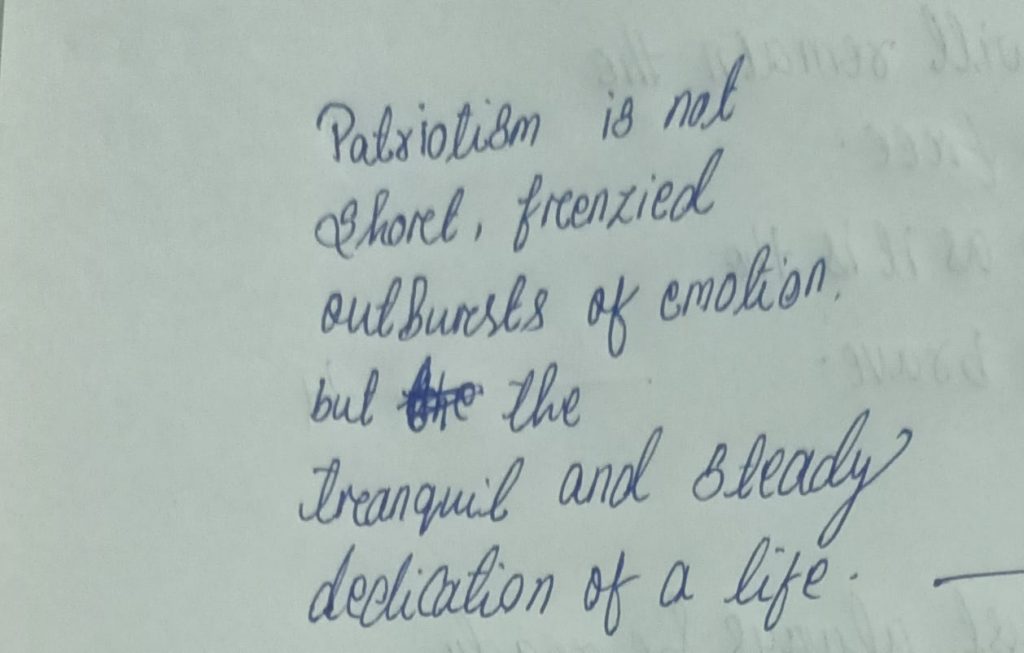 Patriotism is not
Short, frenzied
outbursts of emotion,
but the
tranquil and steady
dedication of a life. —